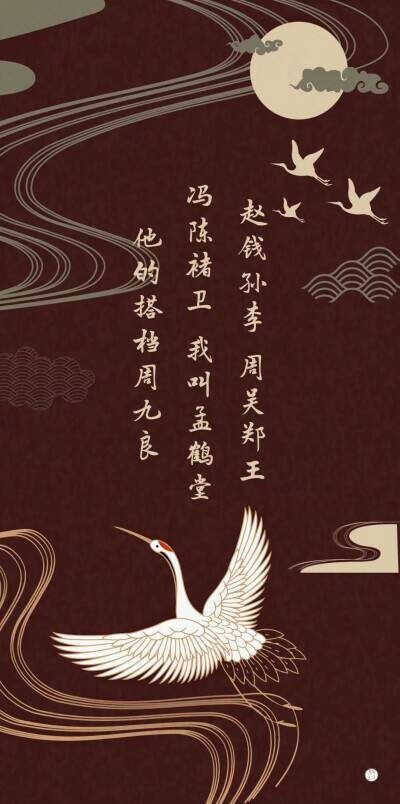 赵钱孙李 周吴郑王
冯陈褚卫 我叫孟鹤堂
他的搭档周九良